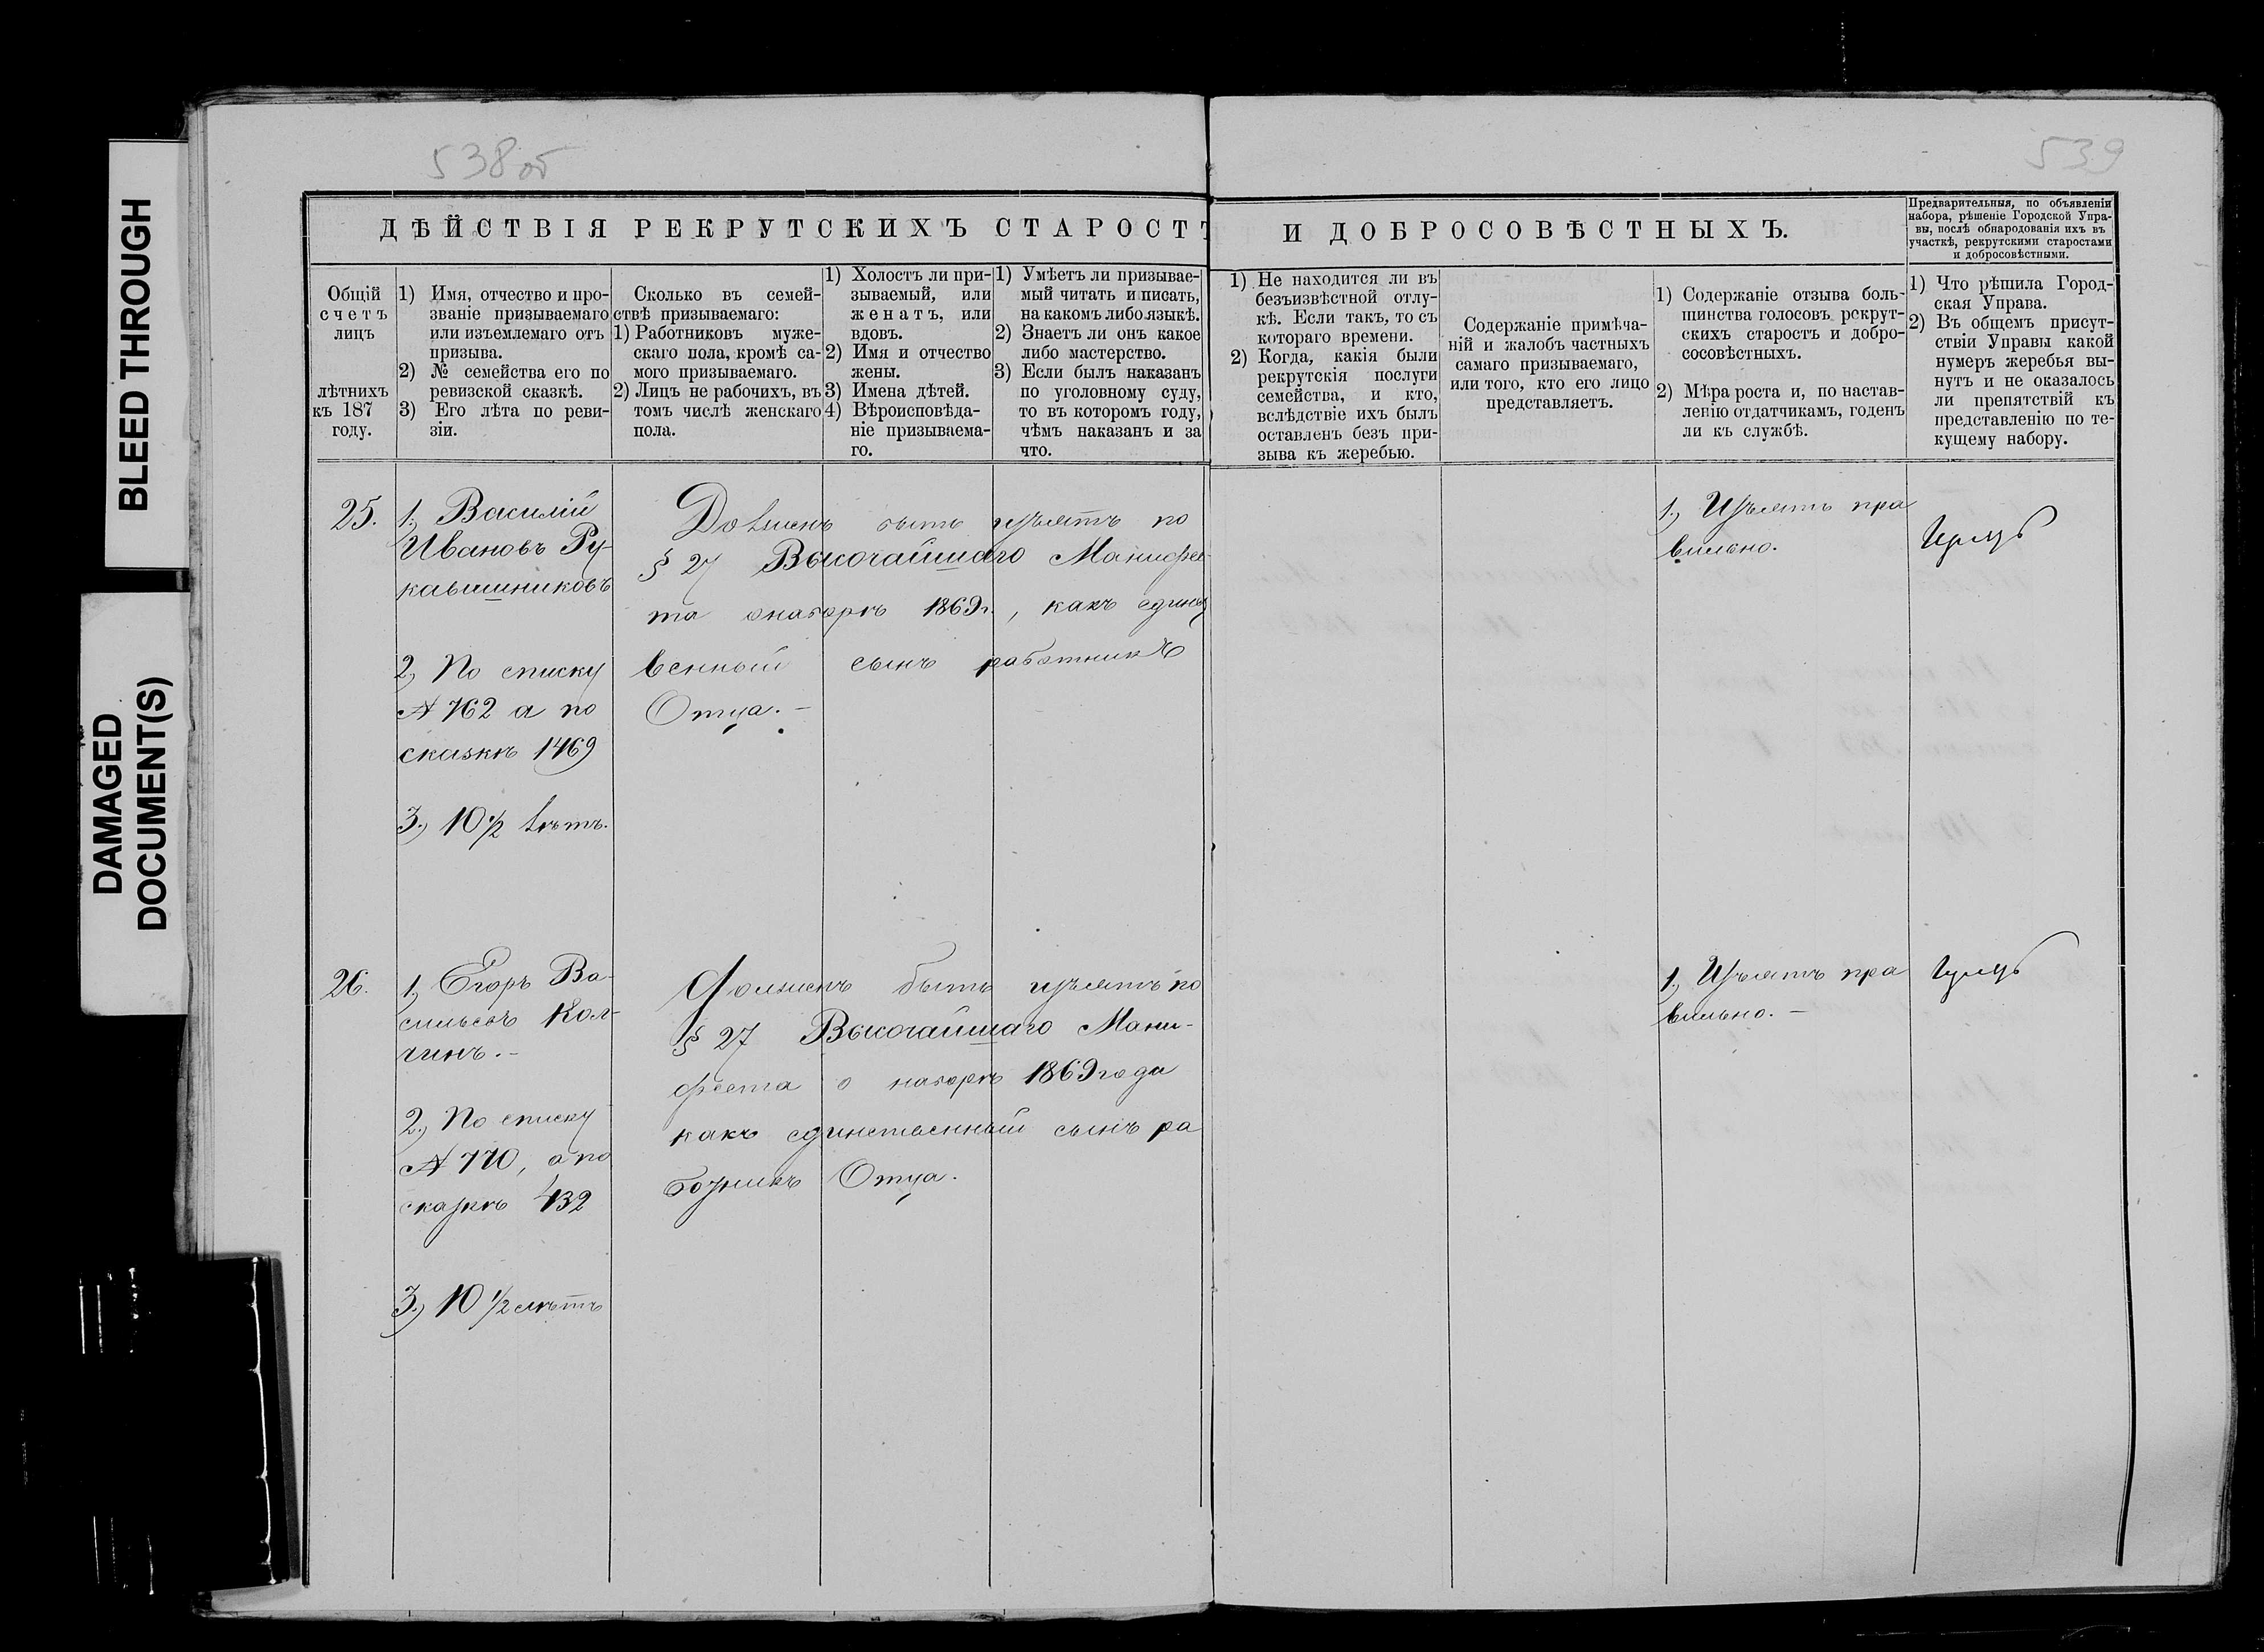 BLEED THROUGH
DAMAGED
DOCUMENT(S)
538об
539
ДѢЙСТВІЯ РЕКРУТСКИХЪ СТАРОСТЪ
И ДОБРОСОВѢСТНЫХЪ.
Предварительныя, по объявленіи
набора, рѣшеніе Городской Упра-
вы, послѣ обнародованія ихъ въ
участкѣ, рекрутскими старостами
и добросовѣстными.
Общій
счетъ
лицъ
лѣтнихъ
къ 187
году.
1) Имя, отчество и про-
званіе призываемаго
или изъемлемаго отъ
призыва.
2) № семейства его по
ревизской сказкѣ.
3) Его лѣта по реви-
зіи.
Сколько въ семей-
ствѣ призываемаго:
1) Работниковъ муже-
скаго пола, кромѣ са-
мого призываемаго.
2) Лицъ не рабочихъ, въ
томъ числѣ женскаго
пола.
1) Холостъ ли при-
зываемый, или
женатъ, или
вдовъ.
2) Имя и отчество
жены.
3) Имена дѣтей.
4) Вѣроисповѣда-
ніе призываема-
го.
1) Умѣетъ ли призывае-
мый читать и писать,
на какомъ либо языкѣ.
2) Знаетъ ли онъ какое
либо мастерство.
3) Если былъ наказанъ
по уголовному суду,
то въ которомъ году,
чѣмъ наказанъ и за
что.
1) Не находится ли въ
безъизвѣстной отлу-
кѣ. Если такъ, то съ
котораго времени.
2) Когда, какія были
рекрутскія послуги
семейства, и кто,
вслѣдствіе ихъ былъ
оставленъ безъ при-
зыва къ жеребью.
Содержаніе примѣча-
ній и жалобъ частныхъ
самаго призываемаго,
или того, кто его лицо
представляетъ.
1) Содержаніе отзыва боль-
шинства голосовъ рекрут-
скихъ старостъ и добро-
сосовѣстныхъ.
2) Мѣра роста и, по настав-
ленію отдатчикамъ, годенъ
ли къ службѣ.
1) Что рѣшила Город-
ская Управа.
2) Въ общемъ присут-
ствіи Управы какой
нумеръ жеребья вы-
нутъ и не оказалось
ли препятствій къ
представленію по те-
кущему набору.
25.
1, Василій
Ивановъ Ру-
кавишниковъ
2, По списку
№ 762 а по
сказкѣ 1469
3, 10 1/2 лѣтъ.
Долженъ быть изъятъ по
§ 27 Высочайшаго Манифес-
та онаборѣ 1869г., какъ единст
венный сынъ работникъ
Отца. -
1, Изъятъ пра
вильно.
26.
1, Егоръ Ва-
сильевъ Кол-
чинъ. -
2, По списку
№ 770, а по
сказкѣ 432
3, 10 1/2 лѣтъ
Долженъ быть изъятъ по
§ 27 Высочайшаго Мани-
феста о наборѣ 1869 года
какъ единственный сынъ ра
ботникъ Отца.
1, Изъятъ пра
вильно. -